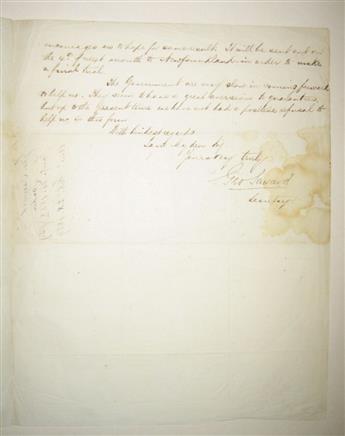 encourages us to hope for some result. It will be sent out on
the 4th of next month to Newfoundland in order to make
a finish trial.
The Government are very slow in coming forward
to help us. They seem to have a great aversion to guarantees,
but up to the present time we have not had a positive refusal to
help us in this form
With kindest regards
I am My dear
yours very truly
Geo Saward
Secretary